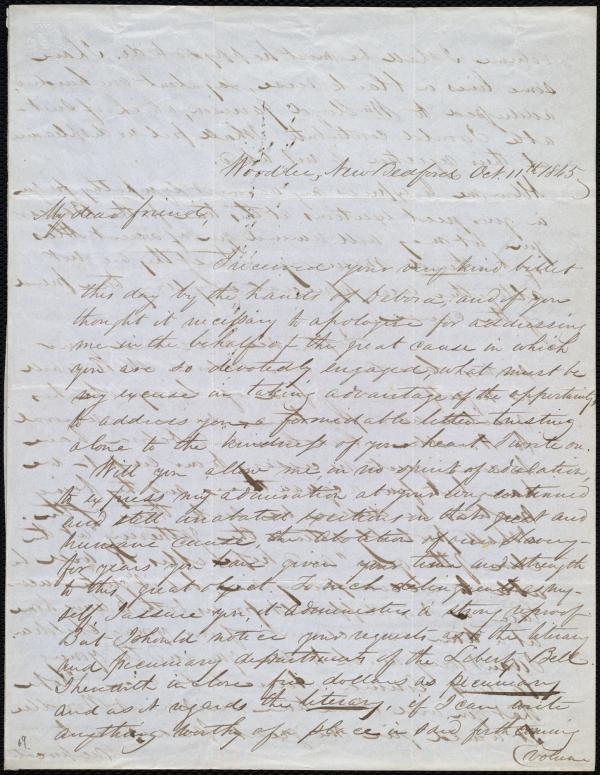 Woodlee, New Bedford Oct. 11th 1845
My dear friend,
I received your very kind billet
this day by the hands of Debora, and if you
thought it necessary to apologise for addressing
me in the behalf of the great cause in which
you are so devotedly engaged, what must be
my excuse in taking advantage of the opportunity
to address you a formidable letter trusting
alone to the kindness of your heart I write on.
Will you allow me in no spirit of adulation,
to express my admiration at your long continued
and still unabated exertions in that great and
humane cause the abolition of our slavery—
for years you have given your time and strength
to this great object. To such delinquents as my-
self, I assure you, it administers a strong reproof.
But I should notice your requests as to the literary
and pecuniary departments of the Liberty Bell.
I herewith inclose five dollars as pecuniary
and as it regards the literary, if I can write
anything worthy of a place in said forthcoming
volume